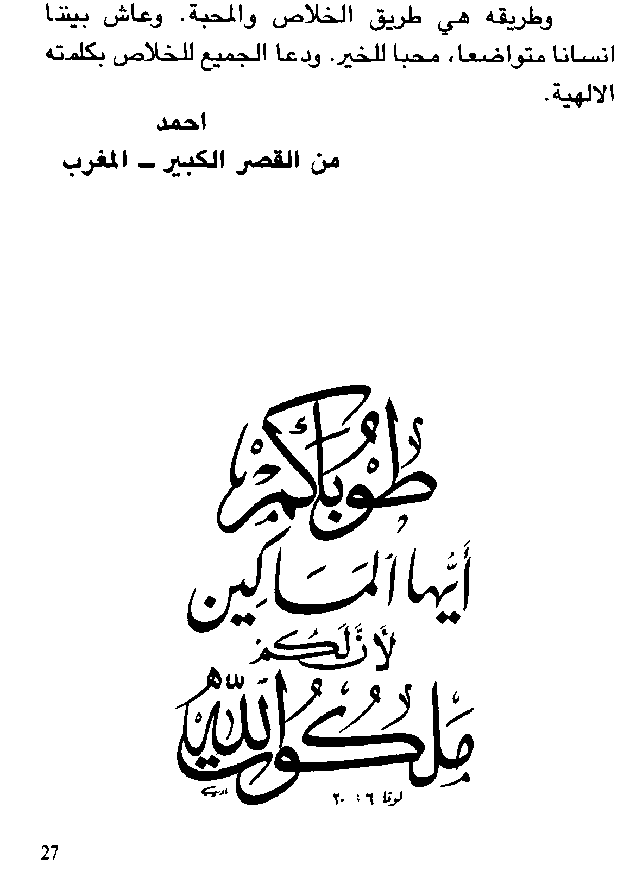 وطريقه هي طريق الخلاص والمحبة. وعاش بيننا
انسانا متواضعا، محبا للخير. ودعا الجميع للخلاص بكلمته
الالهية.
احمد
من القصر الكبير – المغرب
طُوبَاكُمْ
أَيُّهَا المَسَاكِين
لأَنَّ لَكُمْ
مَلَكُوتَ اللَّهِ
لوقا ٦ : ٢٠
27